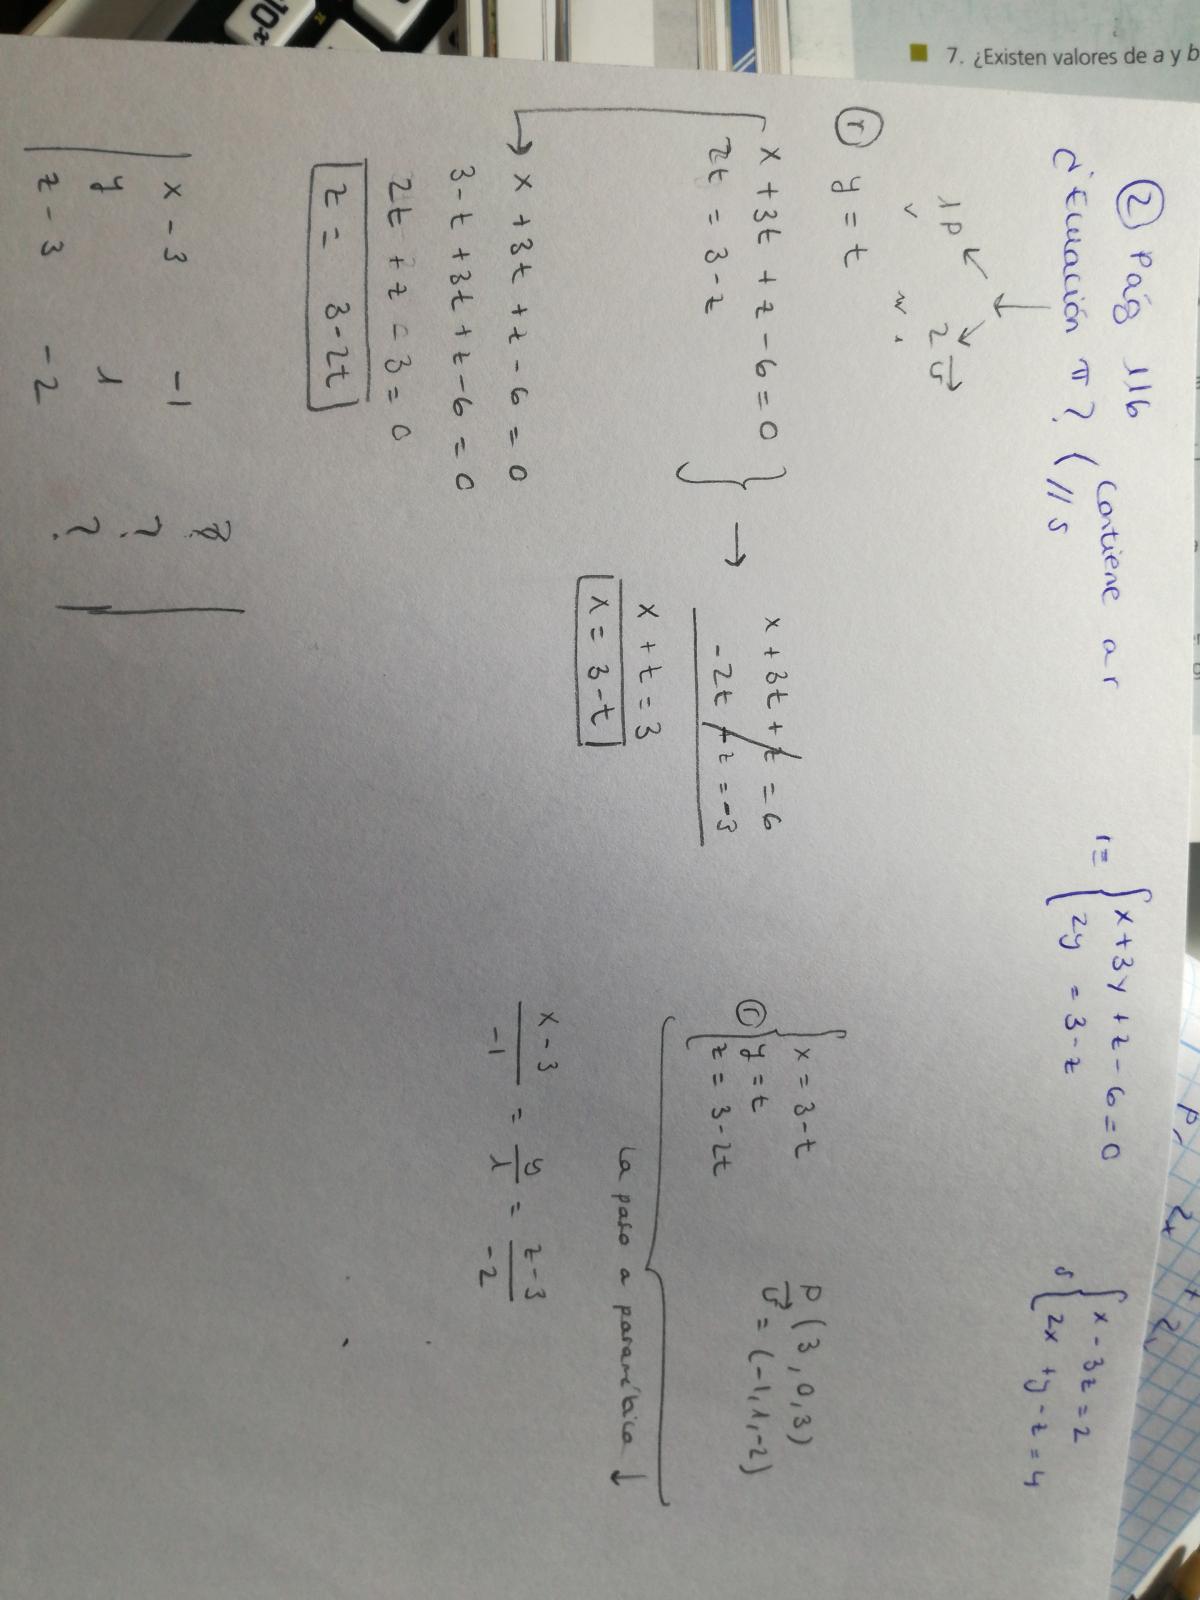 7. ¿Existen valores de a y b
② Pág 116
¿Ecuación π? ( contiene a r
// s
r ≡ { x + 3y + z - 6 = 0
2y = 3 - z
s { x - 3z = 2
2x + y - z = 4
1P 2 v⃗
ⓡ y = t
x + 3t + z - 6 = 0 }
2t = 3 - z
→ x + 3t + z = 6
-2t + z = -3
x + t = 3
x = 3 - t
→ x + 3t + z - 6 = 0
3 - t + 3t + z - 6 = 0
2t + z - 3 = 0
z = 3 - 2t
ⓡ { x = 3 - t
y = t
z = 3 - 2t
P (3, 0, 3)
v⃗ = (-1, 1, -2)
La paso a paramétrica ↓
x - 3 / -1 = y / 1 = z - 3 / -2
| x - 3 -1 ? |
y 1 ?
z - 3 -2 ?
10x